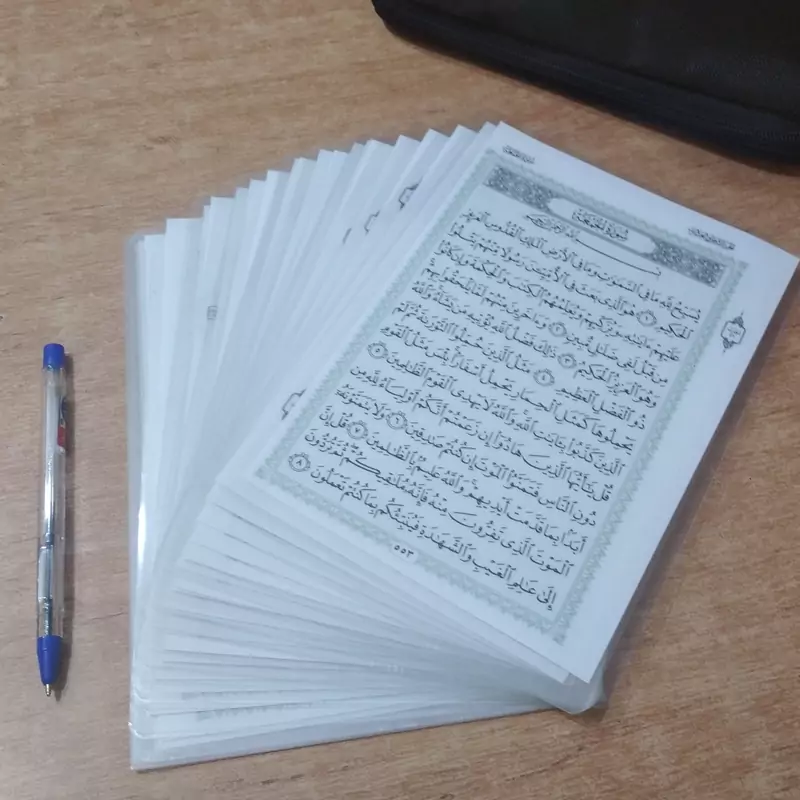 سُورَةُ الجُمُعَةِ
بِسْمِ ٱللَّهِ ٱلرَّحْمَٰنِ ٱلرَّحِيمِ
يُسَبِّحُ لِلَّهِ مَا فِي ٱلسَّمَٰوَٰتِ وَمَا فِي ٱلْأَرْضِ ٱلْمَلِكِ ٱلْقُدُّوسِ ٱلْعَزِيزِ
ٱلْحَكِيمِ ١ هُوَ ٱلَّذِي بَعَثَ فِي ٱلْأُمِّيِّۦنَ رَسُولًا مِّنْهُمْ يَتْلُوا۟
عَلَيْهِمْ ءَايَٰتِهِۦ وَيُزَكِّيهِمْ وَيُعَلِّمُهُمُ ٱلْكِتَٰبَ وَٱلْحِكْمَةَ وَإِن كَانُوا۟
مِن قَبْلُ لَفِي ضَلَٰلٍ مُّبِينٍ ٢ وَءَاخَرِينَ مِنْهُمْ لَمَّا يَلْحَقُوا۟ بِهِمْ
وَهُوَ ٱلْعَزِيزُ ٱلْحَكِيمُ ٣ ذَٰلِكَ فَضْلُ ٱللَّهِ يُؤْتِيهِ مَن يَشَآءُ وَٱللَّهُ
ذُو ٱلْفَضْلِ ٱلْعَظِيمِ ٤ مَثَلُ ٱلَّذِينَ حُمِّلُوا۟ ٱلتَّوْرَىٰةَ ثُمَّ لَمْ
يَحْمِلُوهَا كَمَثَلِ ٱلْحِمَارِ يَحْمِلُ أَسْفَارًۢا بِئْسَ مَثَلُ ٱلْقَوْمِ
ٱلَّذِينَ كَذَّبُوا۟ بِـَٔايَٰتِ ٱللَّهِ وَٱللَّهُ لَا يَهْدِي ٱلْقَوْمَ ٱلظَّٰلِمِينَ ٥
قُلْ يَٰٓأَيُّهَا ٱلَّذِينَ هَادُوٓا۟ إِن زَعَمْتُمْ أَنَّكُمْ أَوْلِيَآءُ لِلَّهِ مِن
دُونِ ٱلنَّاسِ فَتَمَنَّوُا۟ ٱلْمَوْتَ إِن كُنتُمْ صَٰدِقِينَ ٦ وَلَا يَتَمَنَّوْنَهُۥٓ
أَبَدًۢا بِمَا قَدَّمَتْ أَيْدِيهِمْ وَٱللَّهُ عَلِيمٌۢ بِٱلظَّٰلِمِينَ ٧ قُلْ إِنَّ
ٱلْمَوْتَ ٱلَّذِي تَفِرُّونَ مِنْهُ فَإِنَّهُۥ مُلَٰقِيكُمْ ثُمَّ تُرَدُّونَ
إِلَىٰ عَٰلِمِ ٱلْغَيْبِ وَٱلشَّهَٰدَةِ فَيُنَبِّئُكُم بِمَا كُنتُمْ تَعْمَلُونَ ٨
٥٥٣